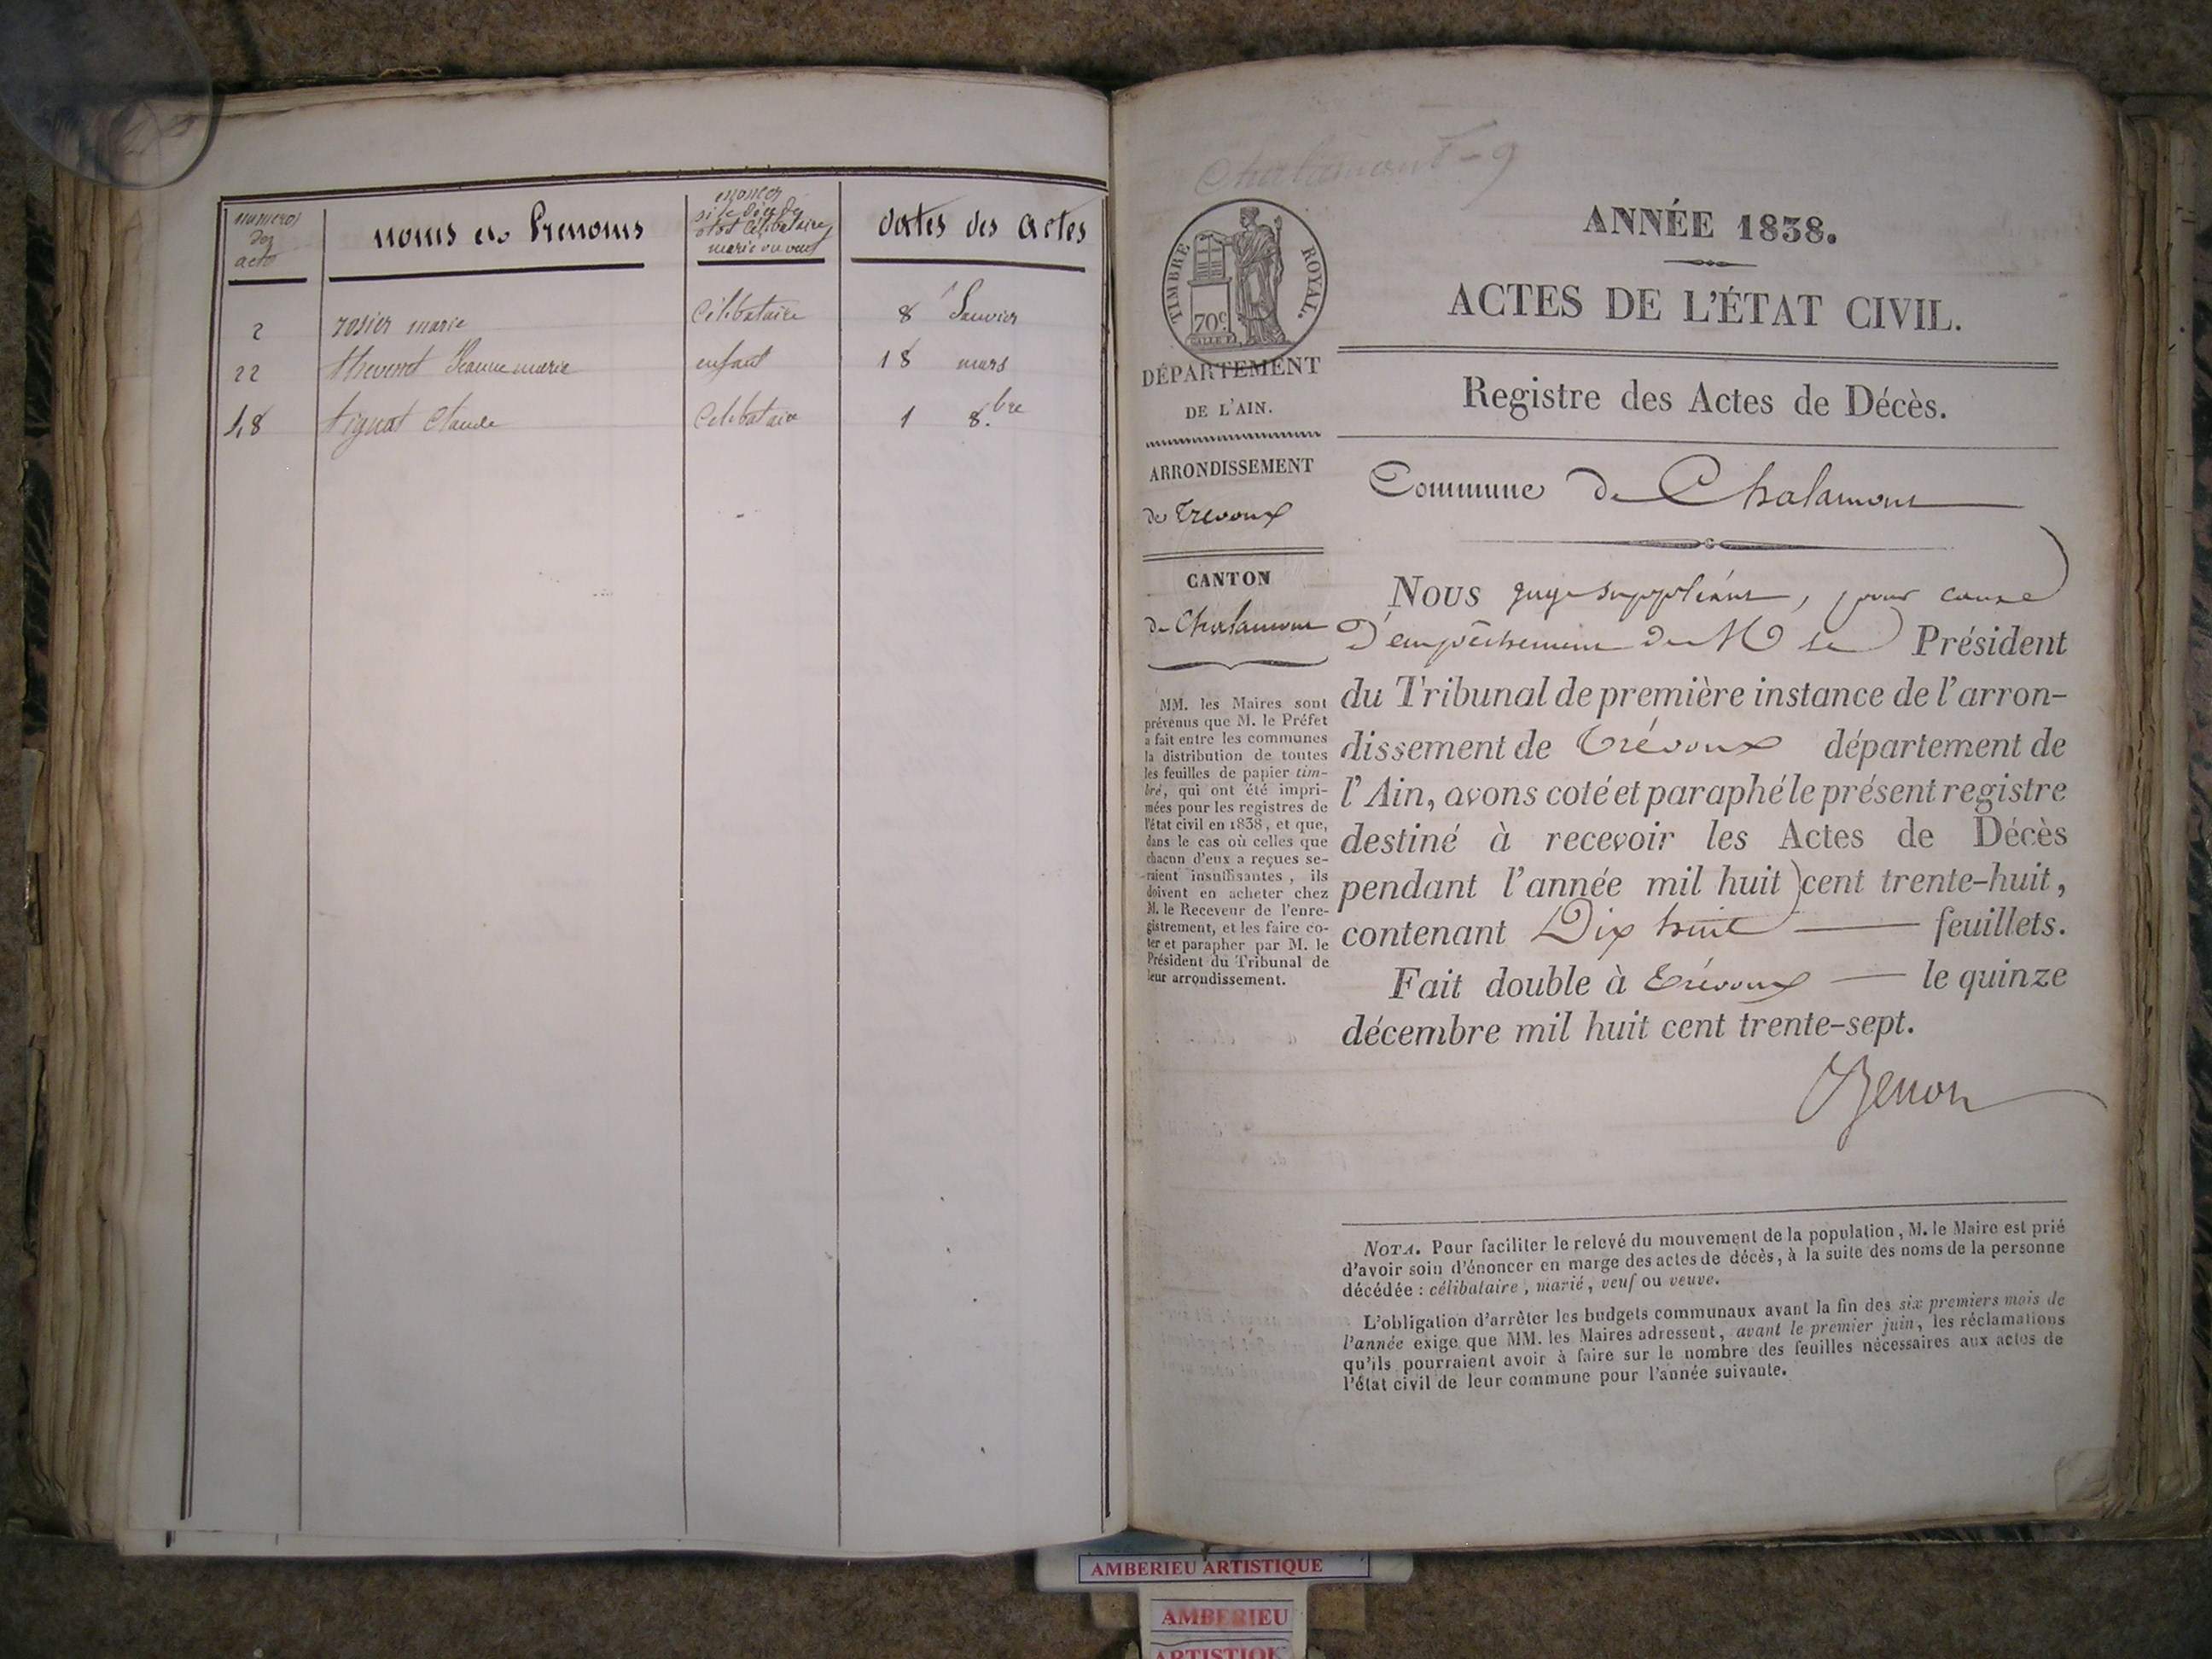 numeros des actes
noms et Prenoms
enoncer si le décédé etoit célibataire marié ou veuf
dates des actes
2 rosier marie Célibataire 8 Janvier
22 thevenet Jeanne marie enfant 18 mars
48 tignat Claude Celibataire 1 8.bre
Chalamont - 9
TIMBRE ROYAL.
70c
DÉPARTEMENT
DE L'AIN.
ARRONDISSEMENT
de Trevoux
CANTON
de Chalamont
MM. les Maires sont
prévenus que M. le Préfet
a fait entre les communes
la distribution de toutes
les feuilles de papier tim-
bré, qui ont été impri-
mées pour les registres de
l'état civil en 1838, et que,
dans le cas où celles que
chacun d'eux a reçues se-
raient insuffisantes, ils
doivent en acheter chez
M. le Receveur de l'enre-
gistrement, et les faire co-
ter et parapher par M. le
Président du Tribunal de
leur arrondissement.
ANNÉE 1838.
ACTES DE L'ÉTAT CIVIL.
Registre des Actes de Décès.
Commune de Chalamont
Nous juge suppléant, pour cause
d'empêchement de M le Président
du Tribunal de première instance de l'arron-
dissement de Trévoux département de
l'Ain, avons coté et paraphé le présent registre
destiné à recevoir les Actes de Décès
pendant l'année mil huit cent trente-huit,
contenant Dix huit feuillets.
Fait double à Trévoux le quinze
décembre mil huit cent trente-sept.
NOTA. Pour faciliter le relevé du mouvement de la population, M. le Maire est prié
d'avoir soin d'énoncer en marge des actes de décès, à la suite des noms de la personne
décédée : célibataire, marié, veuf ou veuve.
L'obligation d'arrêter les budgets communaux avant la fin des six premiers mois de
l'année exige que MM. les Maires adressent, avant le premier juin, les réclamations
qu'ils pourraient avoir à faire sur le nombre des feuilles nécessaires aux actes de
l'état civil de leur commune pour l'année suivante.
AMBERIEU ARTISTIQUE
AMBERIEU